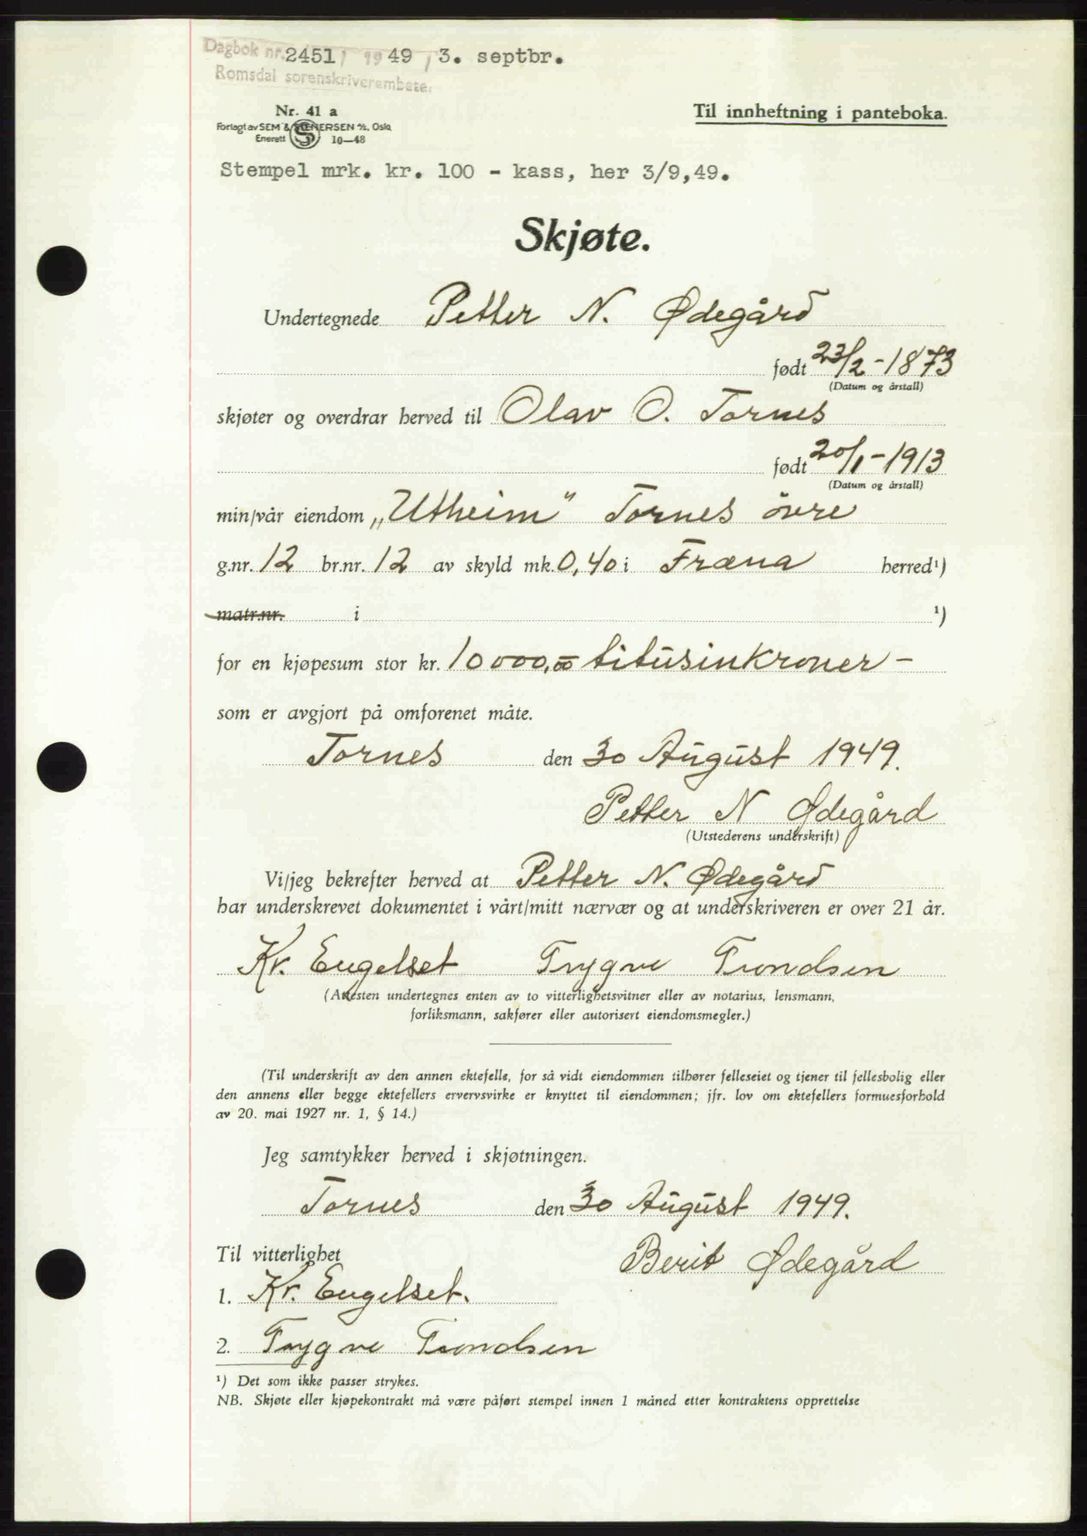 Dagbok nr. 2451 / 1949 / 3. septbr.
Romsdal sorenskriverembete.
Nr. 41 a
Til innheftning i panteboka.
Forlagt av SEM & STENERSEN A/S, Oslo
Enerett 10—48
Stempel mrk. kr. 100 - kass, her 3/9,49.
Skjøte.
Undertegnede Petter N. Ødegård
født 23/2 - 1873
(Datum og årstall)
skjøter og overdrar herved til Olav O. Tornes
født 20/1 - 1913
(Datum og årstall)
min/vår eiendom „Utheim" Tornes övre
g.nr. 12 br.nr. 12 av skyld mk. 0,40 i Fræna herred¹)
matr.nr. i ¹)
for en kjøpesum stor kr. 10000,00 titusinkroner -
som er avgjort på omforenet måte.
Tornes den 30 August 1949.
Petter N Ødegård
(Utstederens underskrift)
Vi/jeg bekrefter herved at Petter N. Ødegård
har underskrevet dokumentet i vårt/mitt nærvær og at underskriveren er over 21 år.
Kr. Engelset Trygve Trondsen
(Attesten undertegnes enten av to vitterlighetsvitner eller av notarius, lensmann,
forliksmann, sakfører eller autorisert eiendomsmegler.)
(Til underskrift av den annen ektefelle, for så vidt eiendommen tilhører felleseiet og tjener til fellesbolig eller
den annens eller begge ektefellers ervervsvirke er knyttet til eiendommen; jfr. lov om ektefellers formuesforhold
av 20. mai 1927 nr. 1, § 14.)
Jeg samtykker herved i skjøtningen.
Tornes den 30 August 1949.
Til vitterlighet
Berit Ødegård
1. Kr. Engelset.
2. Trygve Trondsen
¹) Det som ikke passer strykes.
NB. Skjøte eller kjøpekontrakt må være påført stempel innen 1 måned etter kontraktens opprettelse